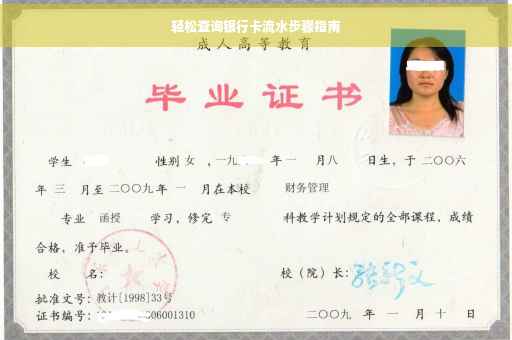 轻松查询银行卡流水步骤指南
成人高等教育
毕业证书
学生 性别 女 ，一九 年 一 月八 日生，于 二〇〇六
年 三 月至 二〇〇九年 一 月在本校 财务管理
专业 函授 学习，修完 专 科教学计划规定的全部课程，成绩
合格，准予毕业。
校 名： 校（院）长：
批准文号：教计[1998]33号
证书编号： 06001310 二〇〇九 年 一 月 十 日